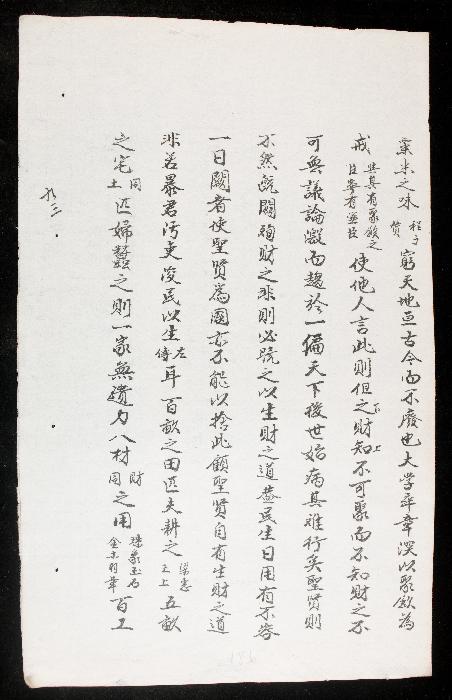 粟米之味 程子 窮天地亘古今而不廢也大学卒章深以聚斂為
戒 與其有聚斂之臣寧有盜臣 使他人言此則但之下財知上不可聚而不知財之不
可無議論激而趨於一偏天下後世始病其難行矣聖賢則
不然既闢殉財之非則必之以生財之道蓋民生日用有不容
一日闕者使聖賢爲國亦不能以捨此顧聖賢自有生財之道
非若暴君污吏浚民以生 左傳 耳百畝之田匹夫耕之 梁惠王上 五畝
之宅 同土 匹婦蠶之則一家無遺力八材 財同 之用 珠象玉石金木羽革 百工
三
186